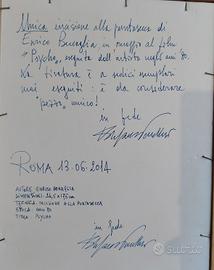 Unica incisione alla puntasecca di
Enrico Benaglia, in omaggio al film
"Psycho, eseguita dall'artista negli anni 80.
La tiratura è a sedici esemplari
mai eseguiti: è da considerare
"pezzo unico!
in fede
ROMA 13.06.2014
AUTORE: ENRICO BENAGLIA
TECNICA: INCISIONE ALLA PUNTASECCA
EPOCA: ANNI 80
TITOLO: PSYCHO
in fede
subito